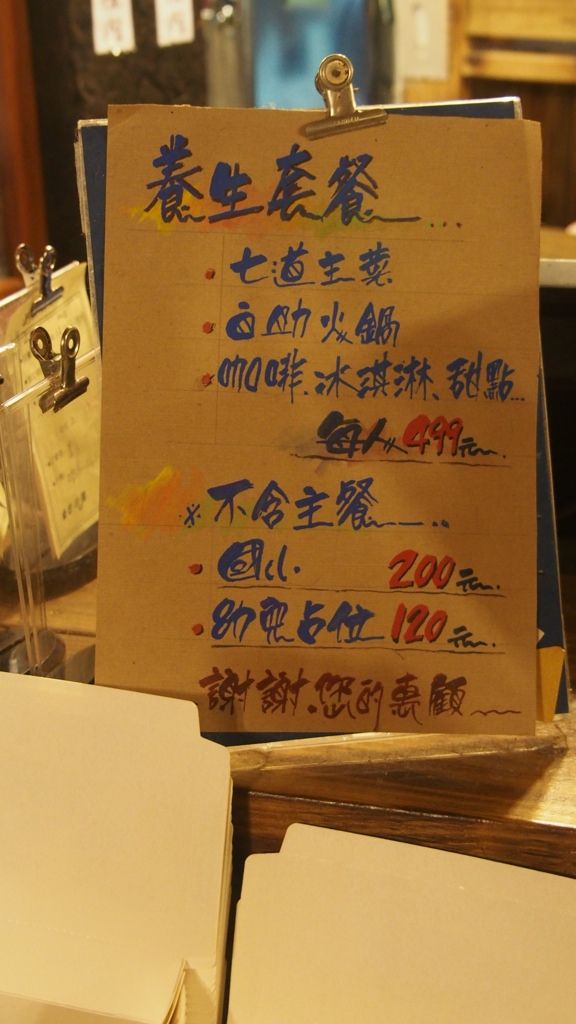 養生套餐...
七道主菜
自助火鍋
咖啡、冰淇淋、甜點...
每人 499元
※不含主餐...
國小 200元
幼兒占位 120元
謝謝.您的惠顧